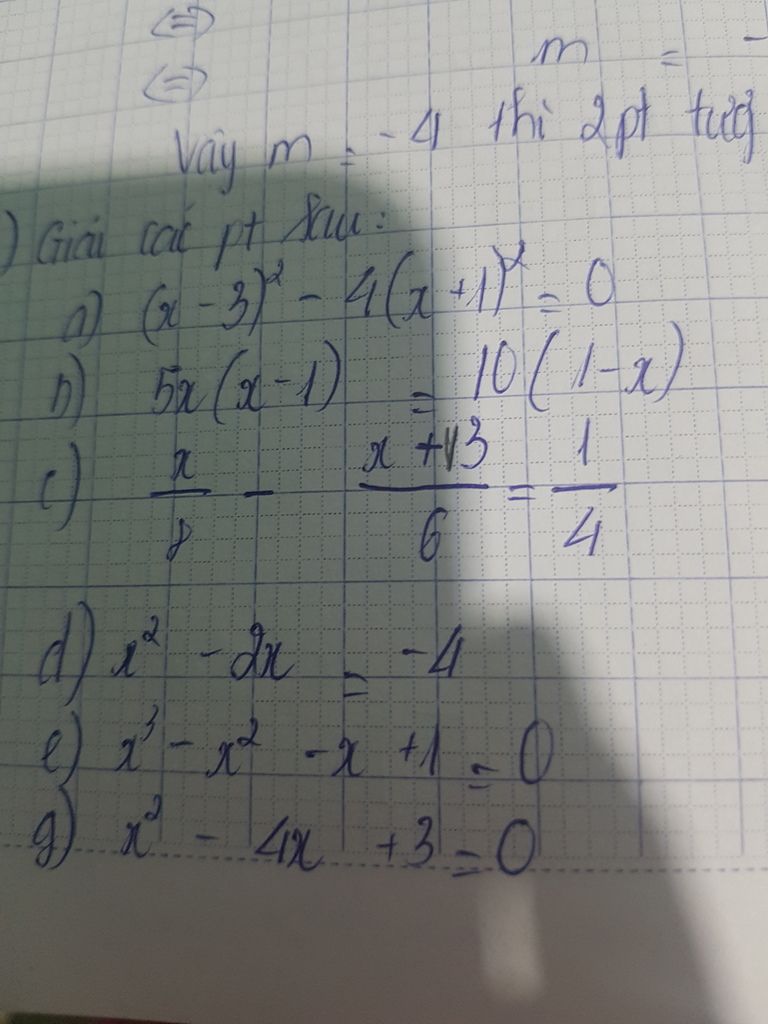 (=)
m = -
(=)
Vậy m = -4 thì 2 pt tươg
) Giải các pt sau:
a) (x - 3)² - 4(x + 1)² = 0
b) 5x(x - 1) = 10(1 - x)
c) x/8 - (x + 13)/6 = 1/4
d) x² - 2x = -4
e) x³ - x² - x + 1 = 0
g) x² - 4x + 3 = 0